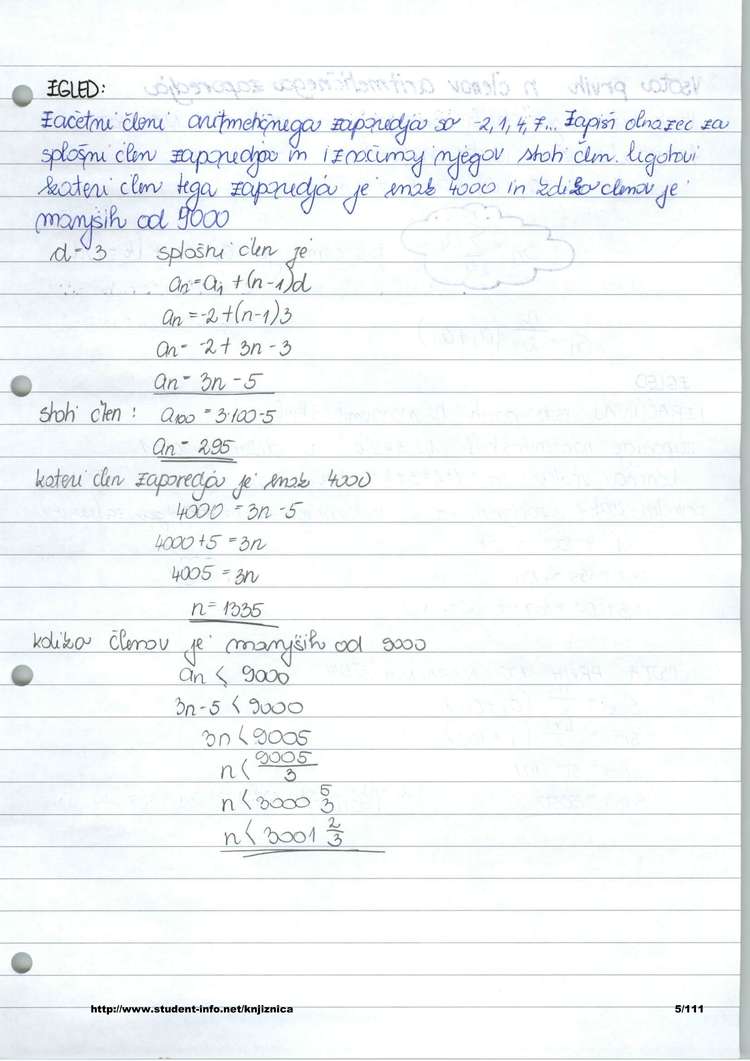 ZGLED:
Začetni členi aritmetičnega zaporedja so -2, 1, 4, 7... Zapiši obrazec za
splošni člen zaporedja in izračunaj njegov stoti člen. Ugotovi
kateri člen tega zaporedja je enak 4000 in koliko členov je
manjših od 9000
d = 3 splošni člen je
an = a1 + (n-1)d
an = -2 + (n-1)3
an = -2 + 3n - 3
an = 3n - 5
stoti člen : a100 = 3·100-5
an = 295
kateri člen zaporedja je enak 4000
4000 = 3n - 5
4000+5 = 3n
4005 = 3n
n = 1335
koliko členov je manjših od 9000
an < 9000
3n-5 < 9000
3n < 9005
n < 9005/3
n < 3000 5/3
n < 3001 2/3
http://www.student-info.net/knjiznica 5/111